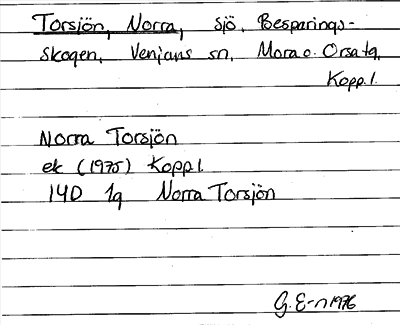 Torsjön, Norra, sjö. Besparings-
skogen, Venjans sn, Mora o. Orsa tg,
Kopp. l.
Norra Torsjön
ek (1975) Kopp l.
14D 1q Norra Torsjön
G. E-n 1976